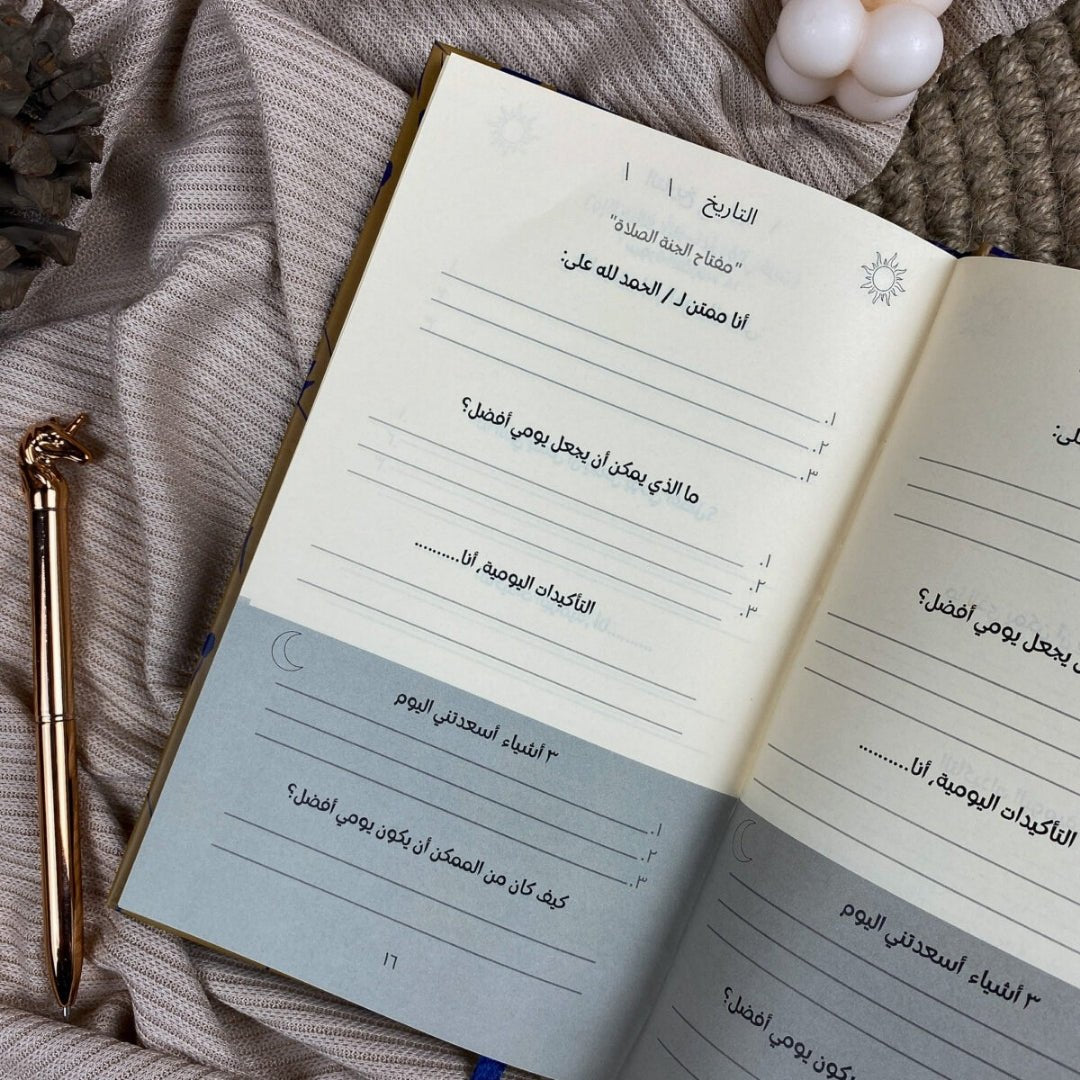 التاريخ \ \
"مفتاح الجنة الصلاة"
أنا ممتن لـ / الحمد لله على:
١.
٢.
٣.
ما الذي يمكن أن يجعل يومي أفضل؟
١.
٢.
٣.
التأكيدات اليومية, أنا..........
٣ أشياء أسعدتني اليوم
١.
٢.
٣.
كيف كان من الممكن أن يكون يومي أفضل؟
١٦
يجعل يومي أفضل؟
التأكيدات اليومية, أنا..........
٣ أشياء أسعدتني اليوم
يكون يومي أفضل؟